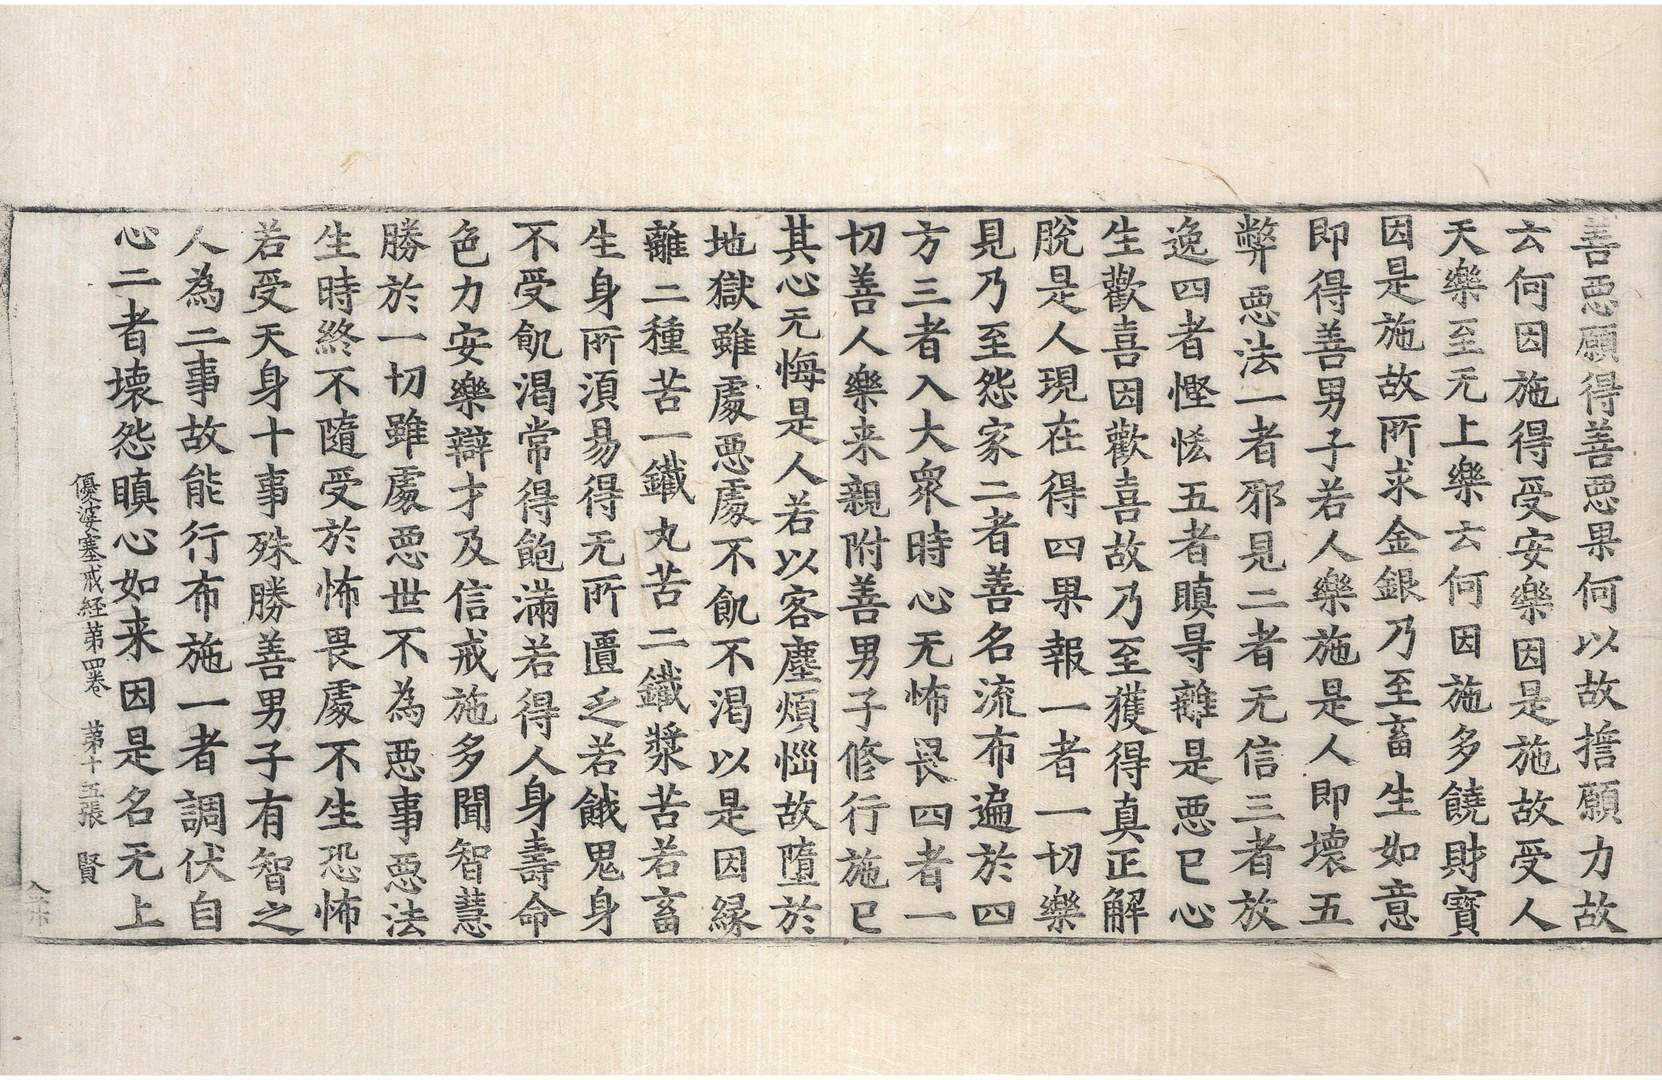 善惡願得善惡果何以故擔願力故
云何因施得受安樂因是施故受人
天樂至无上樂云何因施多饒財寶
因是施故所求金銀乃至畜生如意
即得善男子若人樂施是人即壞五
弊惡法一者邪見二者无信三者放
逸四者慳悋五者瞋㝵離是惡已心
生歡喜因歡喜故乃至獲得真正解
脫是人現在得四果報一者一切樂
見乃至怨家二者善名流布遍於四
方三者入大衆時心无怖畏四者一
切善人樂来親附善男子修行施已
其心无悔是人若以客塵煩惱故墮於
地獄雖處惡處不飢不渴以是因緣
離二種苦一鐵丸苦二鐵漿苦若畜
生身所須易得无所匱乏若餓鬼身
不受飢渴常得飽滿若得人身壽命
色力安樂辯才及信戒施多聞智慧
勝於一切雖處惡世不為惡事惡法
生時終不隨受於怖畏處不生恐怖
若受天身十事殊勝善男子有智之
人為二事故能行布施一者調伏自
心二者壞怨瞋心如来因是名无上
優婆塞戒経苐四卷　苐十五張　賢